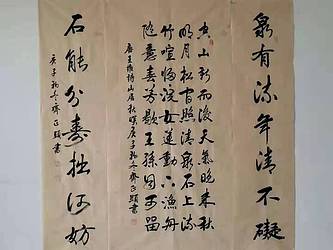 泉有流年清不礙
空山新雨後天氣晚來秋
明月松間照清泉石上流
竹喧歸浣女蓮動下漁舟
隨意春芳歇王孫自可留
唐王維詩山居秋暝庚子初冬齊正顯書
石能分壽拙何妨
庚子初冬齊正顯書